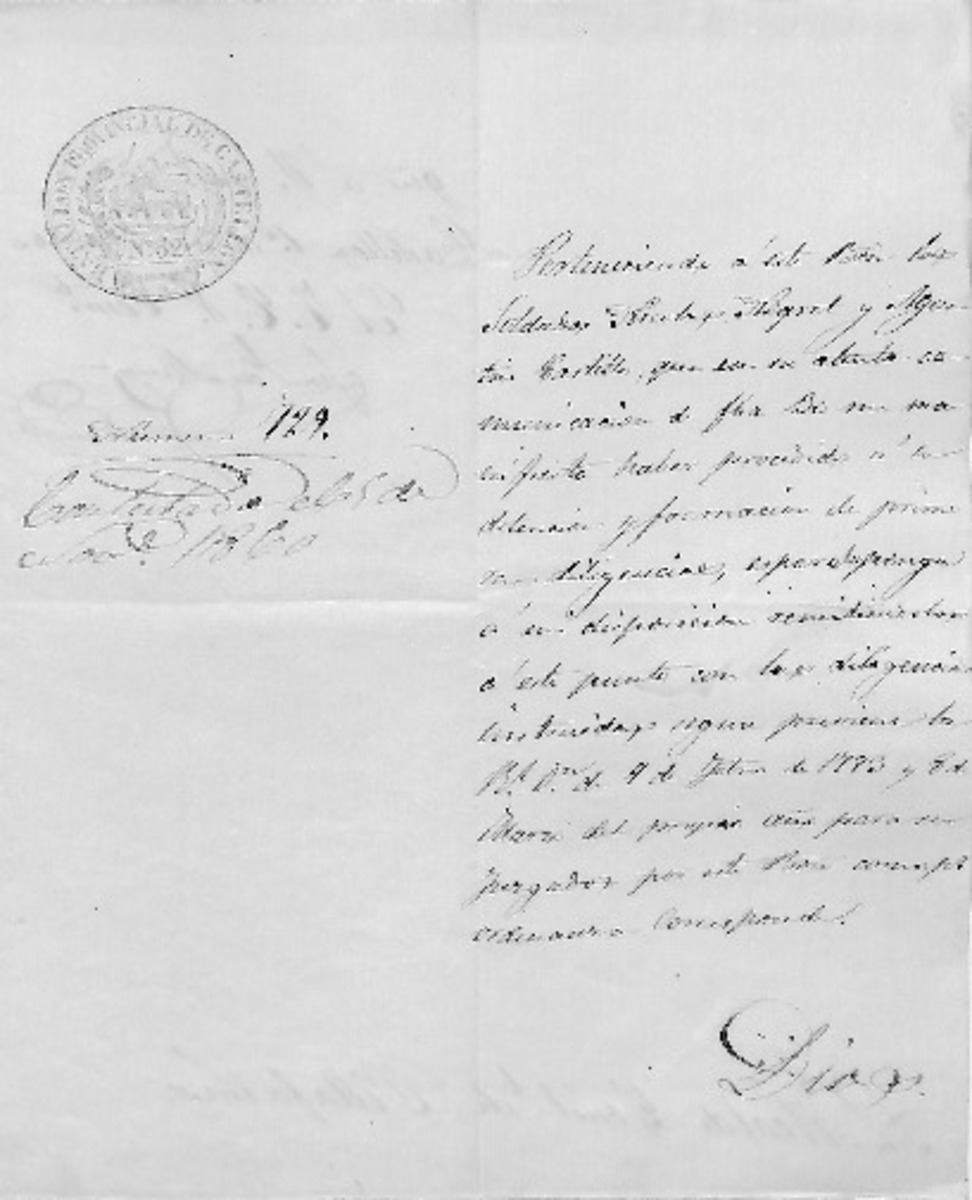 BATALLON PROVINCIAL DE CASTELLON
Nº 52
Numero 129.
Contestado el 5 de
Nove. 1860
Perteneciendo á este Bon los
Soldados Nicolas Nogrel y Agus-
tin Castillo, que en su atenta co-
municacion de fha me ma-
nifiesta haber procedido á su
detencion y formacion de prime
ras diligencias, espero disponga
á su disposicion remitiendolos
á este punto con las diligencias
instruidas segun previene la
Rl. On. de 9 de Febro de 1793 y 8 de
Marzo del propio año para ser
juzgados por este Bon como p.r
ordenanza Corresponde.
Dios